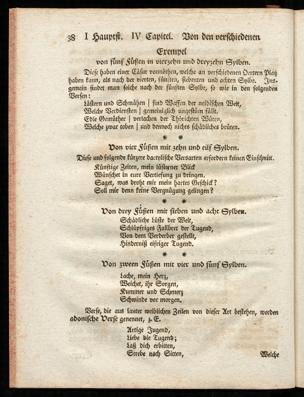 38 I Hauptst. IV Capitel. Von den verschiedenen
Exempel
von fünf Füßen in vierzehn und dreyzehn Sylben.
Diese haben einer Cäsur vonnöthen, welche an verschiedenen Oertern Platz
haben kann, als nach der vierten, fünften, siebenten und achten Sylbe. Ins-
gemein findet man solche nach der fünften Sylbe, so wie in den folgenden
Versen:
Lästern und Schmähen | sind Waffen der neidischen Welt,
Welche Verdiensten | gemeiniglich nachgestellt
Edle Gemüther | verlachen der Thörichten Wüten,
Welche zwar toben | und dennoch nichts schädliches brüten.
* *
Von vier Füßen mit zehn und eilf Sylben.
Diese und folgende kürzere dactylische Versarten erfordern keinen Einschnitt.
Künftige Zeiten, mein lüsterner Blick
Wünschet in eure Vertiefung zu dringen.
Saget, was droht mir mein hartes Geschick?
Soll mir denn keine Vergnügung gelingen?
* *
Von drey Füßen mit sieben und acht Sylben.
Schädliche Lüste der Welt,
Schlüpfriges Fallbret der Tugend,
Von dem Verderber gestellt,
Hinderniß eifriger Tugend.
* *
Von zween Füßen mit vier und fünf Sylben.
Lache, mein Herz,
Weichet, ihr Sorgen,
Kummer und Schmerz
Schwinde vor morgen.
Verse, die aus lauter weiblichen Zeilen von dieser Art bestehen, werden
adonische Verse genennet, z. E.
Artige Jugend,
Liebe die Tugend;
Laß dich erbitten,
Strebe nach Sitten,
Welche